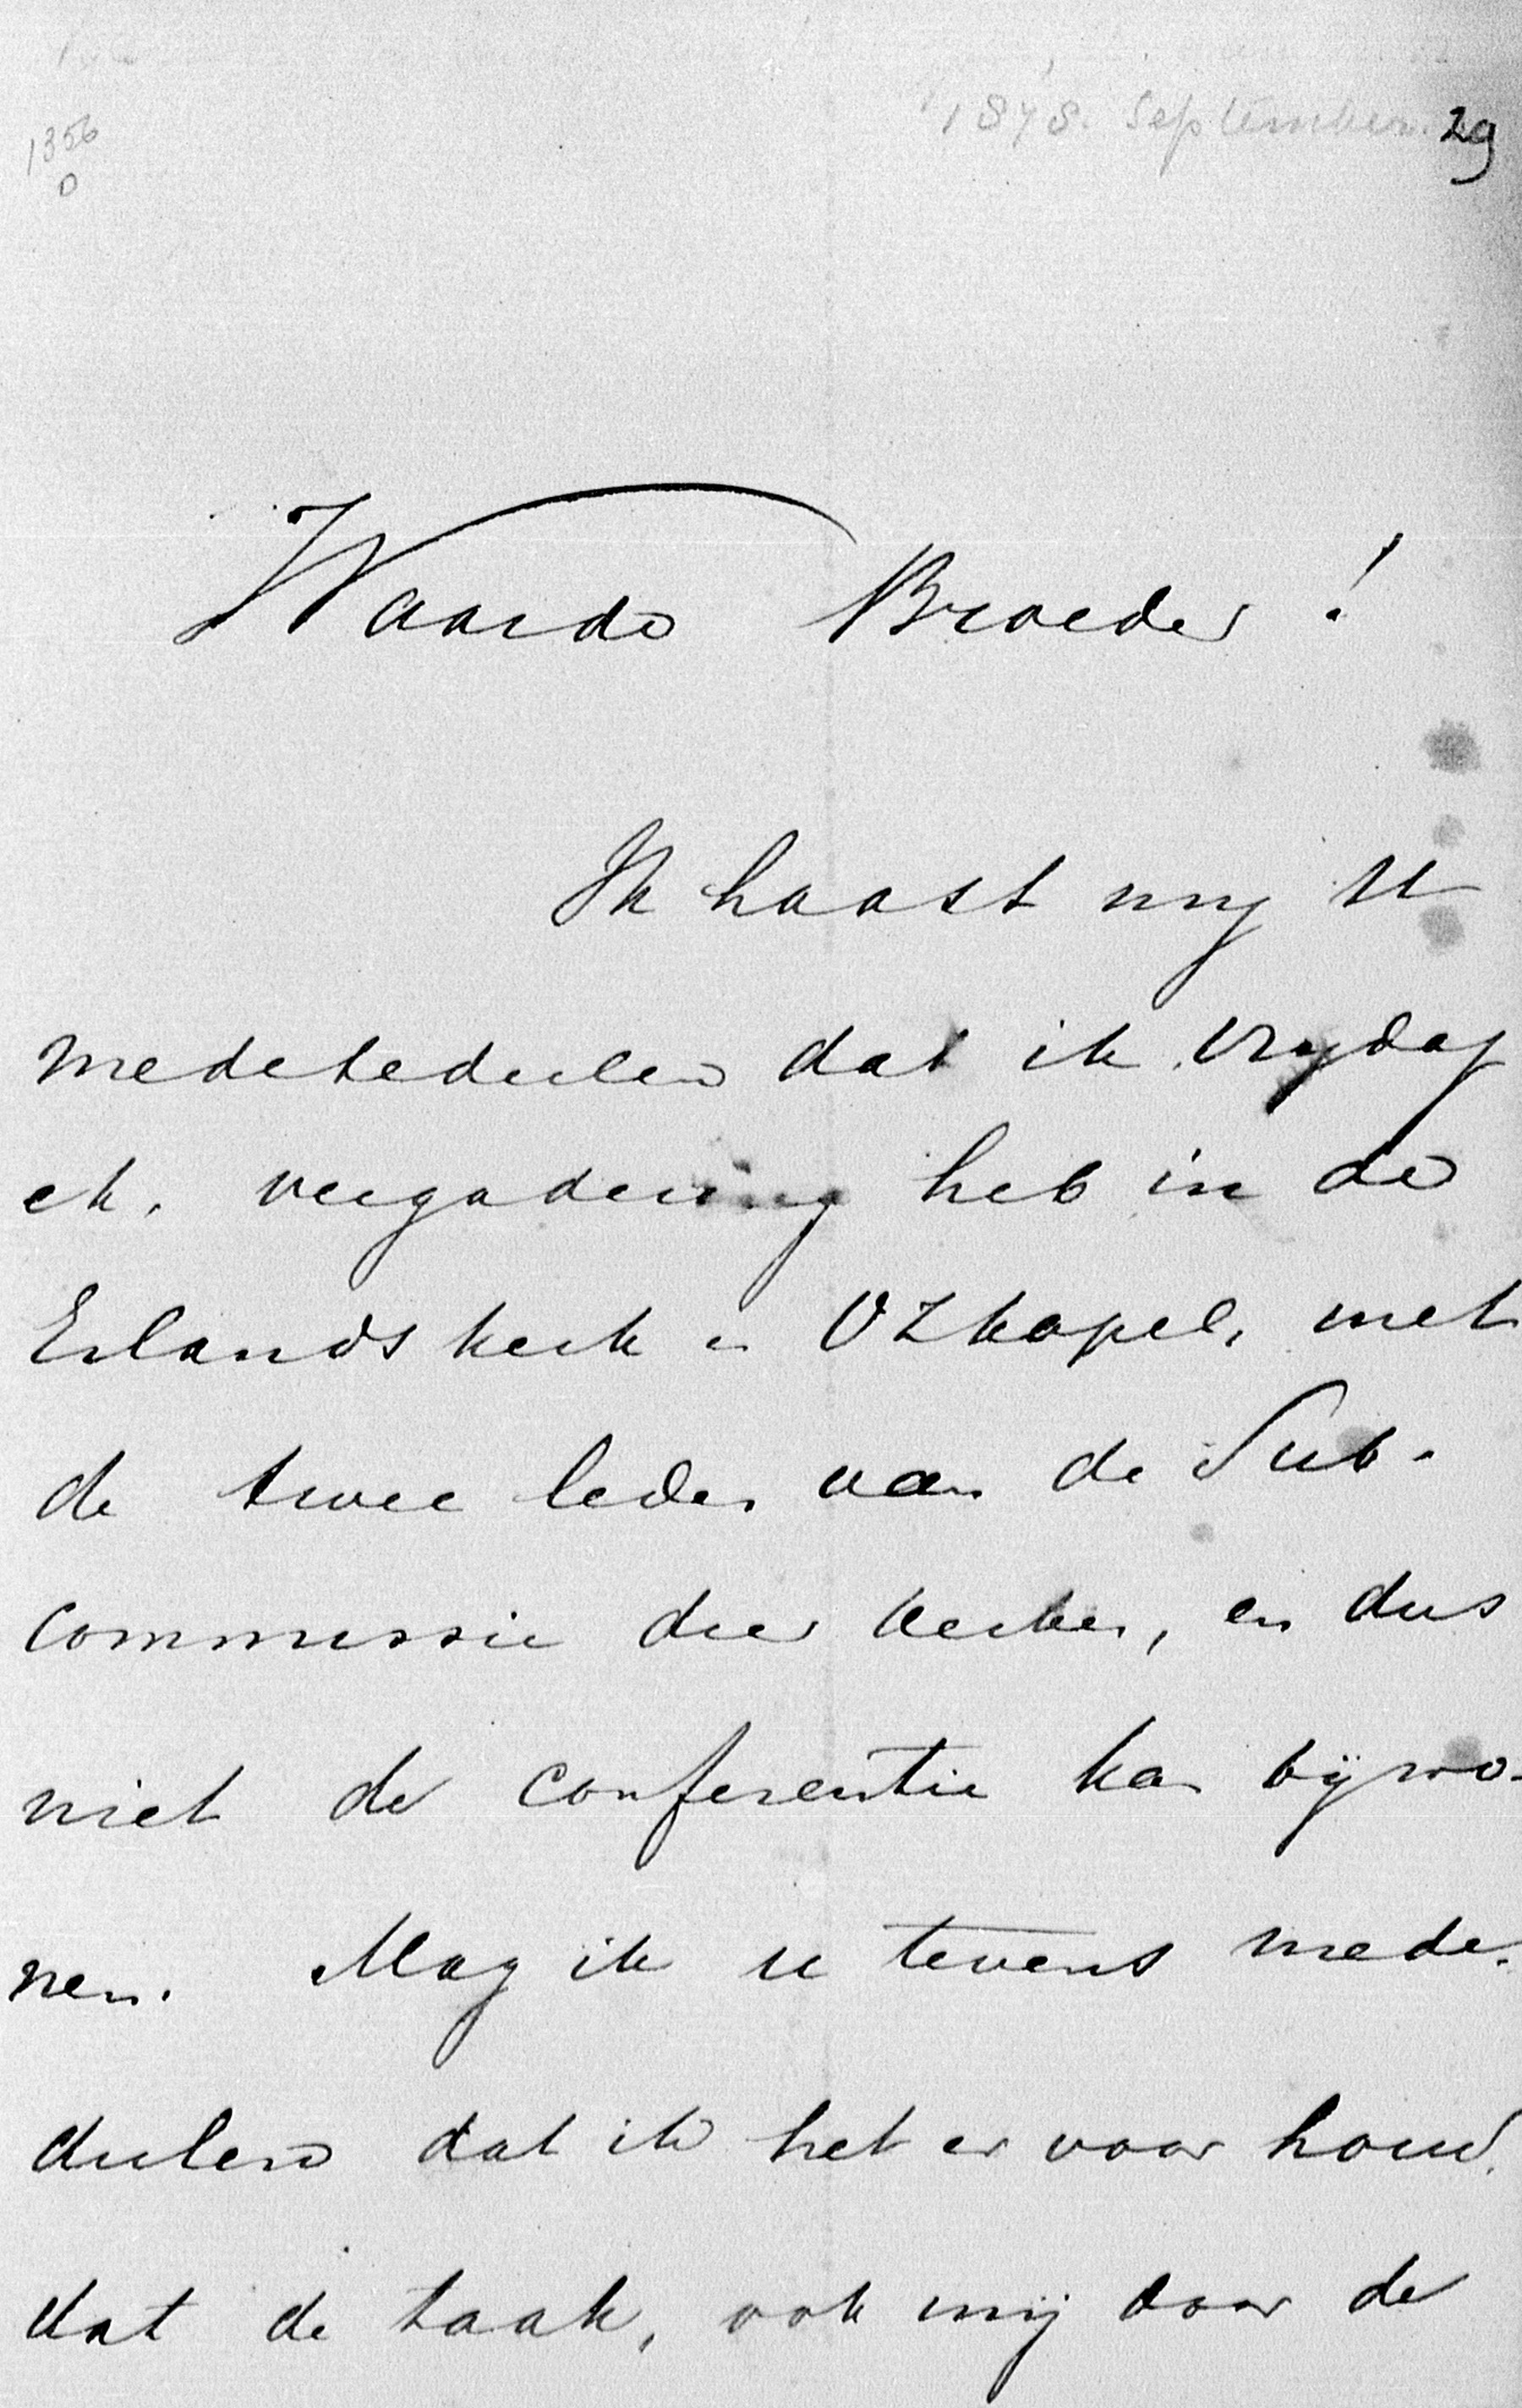 1878. September. 29
1356
D
Waarde Broeder!
Ik haast mij U
medetedeelen dat ik Vrydag
ek. vergadering heb in de
Eilandskerk en OZkapel, met
de twee leden van de Sub-
commissie dier kerken, en dus
niet de conferentie kan bijwo-
nen. Mag ik u tevens mede-
deelen dat ik het er voor houd,
dat de taak, ook mij door de